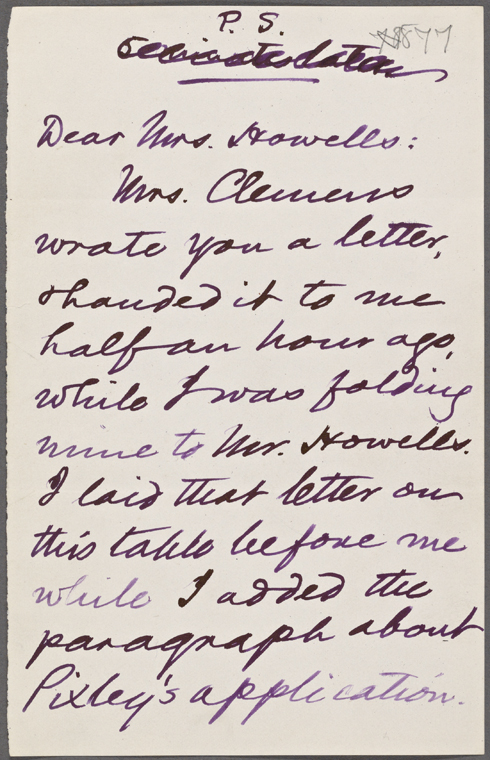 P. S.
1877
Dear Mrs. Howells:
Mrs. Clemens
wrote you a letter,
& handed it to me
half an hour ago,
while I was folding
mine to Mr. Howells.
I laid that letter on
this table before me
while I added the
paragraph about
Pixley's application.